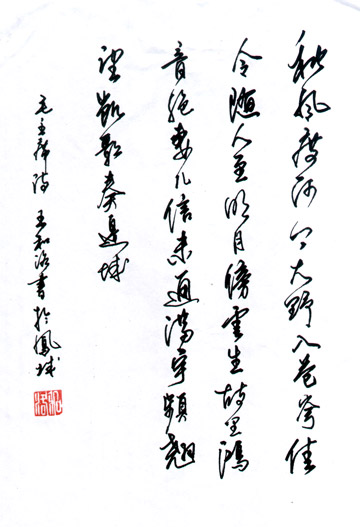 秋風度河上大野入蒼穹佳
令隨人至明月傍雲生故里鴻
音絕妻兒信未通滿宇頻翹
望凱歌奏邊城
毛主席詩 王和洛書於鳳城